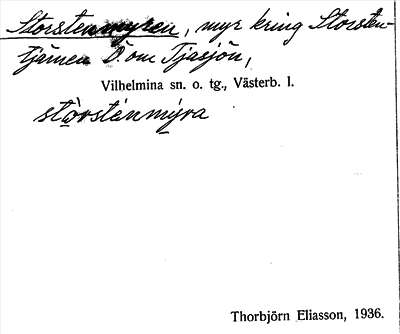 Storstenmyren, myr kring Storsten-
tjärnen Ö. om Tjasjön,
Vilhelmina sn. o. tg., Västerb. l.
stòrsténmýra
Thorbjörn Eliasson, 1936.